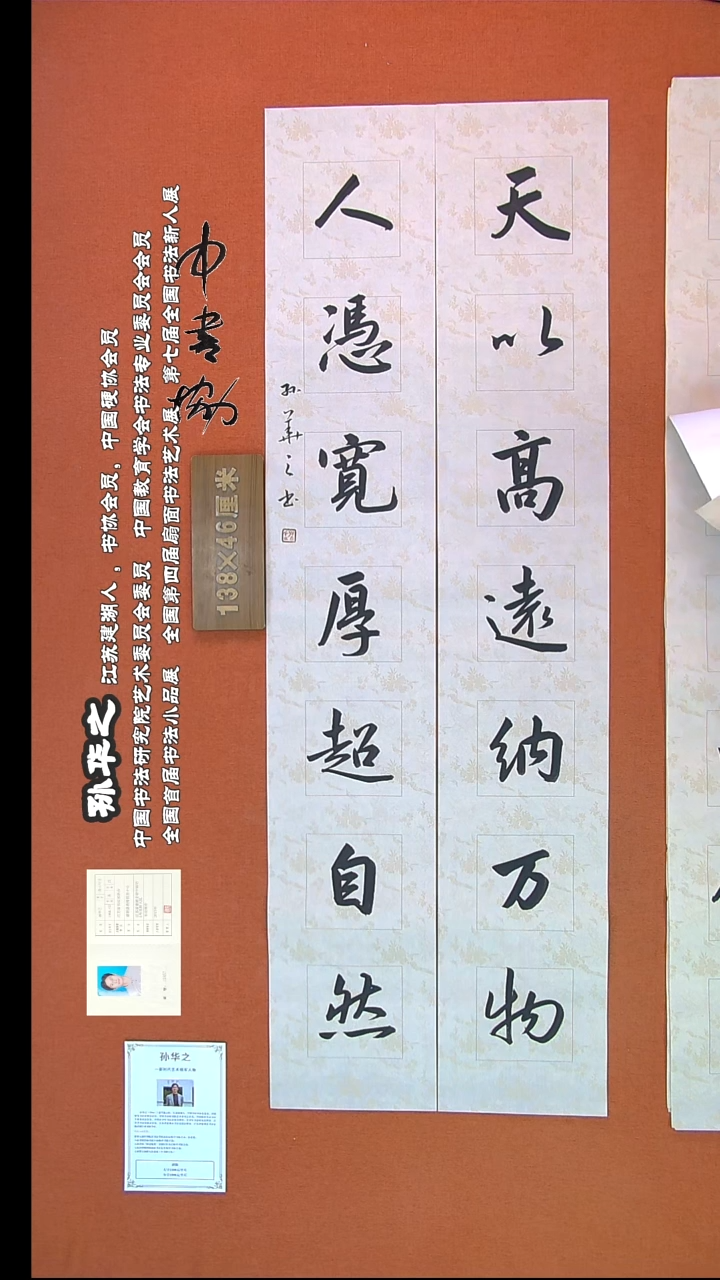 天以高遠纳万物
人憑寬厚超自然
孙華之书
中书协
138×46厘米
孙华之 江苏建湖人，书协会员，中国硬协会员
中国书法研究院艺术委员会委员 中国教育学会书法专业委员会会员
全国首届书法小品展 全国第四届扇面书法艺术展 第七届全国书法新人展
孙华之